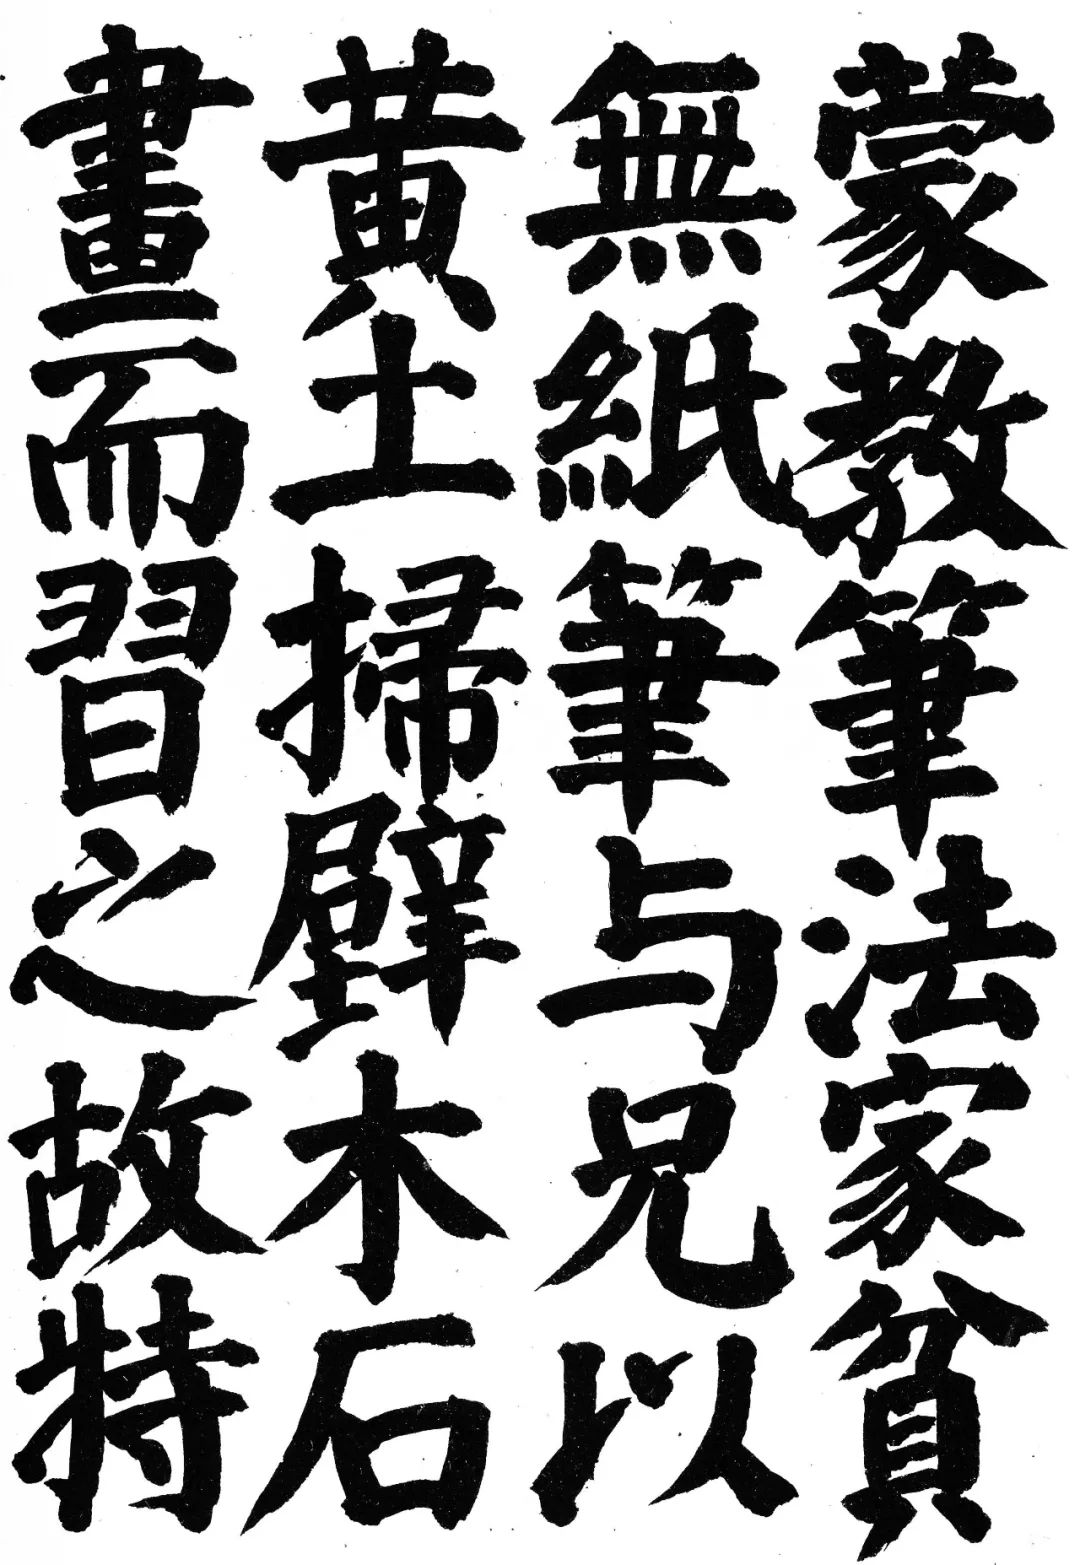 蒙教筆法家貧
無紙筆与兄以
黄土掃壁木石
畫而習之故特